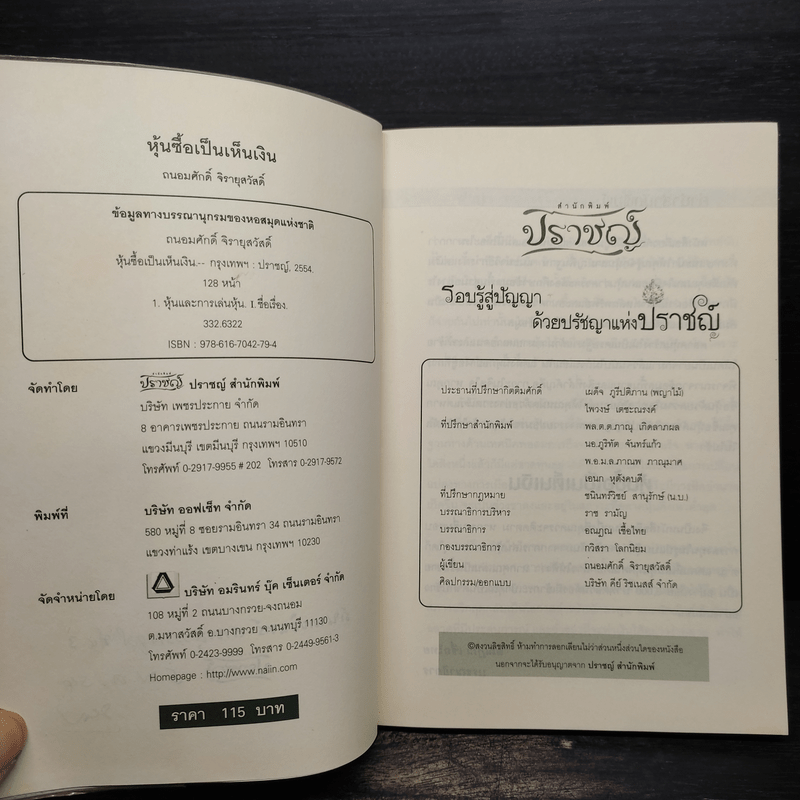 หุ้นซื้อเป็นเห็นเงิน
ถนอมศักดิ์ จิรายุสวัสดิ์
ข้อมูลทางบรรณานุกรมของหอสมุดแห่งชาติ
ถนอมศักดิ์ จิรายุสวัสดิ์
หุ้นซื้อเป็นเห็นเงิน.-- กรุงเทพฯ : ปราชญ์, 2554.
128 หน้า
1. หุ้นและการเล่นหุ้น. I. ชื่อเรื่อง.
332.6322
ISBN : 978-616-7042-79-4
จัดทำโดย ปราชญ์ ปราชญ์ สำนักพิมพ์
บริษัท เพชรประกาย จำกัด
8 อาคารเพชรประกาย ถนนรามอินทรา
แขวงมีนบุรี เขตมีนบุรี กรุงเทพฯ 10510
โทรศัพท์ 0-2917-9955 # 202 โทรสาร 0-2917-9572
พิมพ์ที่ บริษัท ออฟเซ็ท จำกัด
580 หมู่ที่ 8 ซอยรามอินทรา 34 ถนนรามอินทรา
แขวงท่าแร้ง เขตบางเขน กรุงเทพฯ 10230
จัดจำหน่ายโดย บริษัท อมรินทร์ บุ๊ค เซ็นเตอร์ จำกัด
108 หมู่ที่ 2 ถนนบางกรวย-จงถนอม
ต.มหาสวัสดิ์ อ.บางกรวย จ.นนทบุรี 11130
โทรศัพท์ 0-2423-9999 โทรสาร 0-2449-9561-3
Homepage : http://www.naiin.com
ราคา 115 บาท
สำนักพิมพ์
ปราชญ์
รอบรู้สู่ปัญญา
ด้วยปรัชญาแห่งปราชญ์
ประธานที่ปรึกษากิตติมศักดิ์ เผด็จ ภูรีปติภาน (พญาไม้)
ไพวงษ์ เตชะณรงค์
ที่ปรึกษาสำนักพิมพ์ พล.ต.ต.ภาณุ เกิดลาภผล
นอ.ภูริทัต จันทร์แก้ว
พ.อ.ม.ล.ภาณพ ภาณุมาศ
เอนก หุตังคบดี
ที่ปรึกษากฎหมาย ชนินทร์วิชย์ สานุรักษ์ (น.บ.)
บรรณาธิการบริหาร ราช รามัญ
บรรณาธิการ อณฏณ เชื้อไทย
กองบรรณาธิการ กวิสรา โลกนิยม
ผู้เขียน ถนอมศักดิ์ จิรายุสวัสดิ์
ศิลปกรรม/ออกแบบ บริษัท คีย์ ริชเนสส์ จำกัด
©สงวนลิขสิทธิ์ ห้ามทำการลอกเลียนไม่ว่าส่วนหนึ่งส่วนใดของหนังสือ
นอกจากจะได้รับอนุญาตจาก ปราชญ์ สำนักพิมพ์